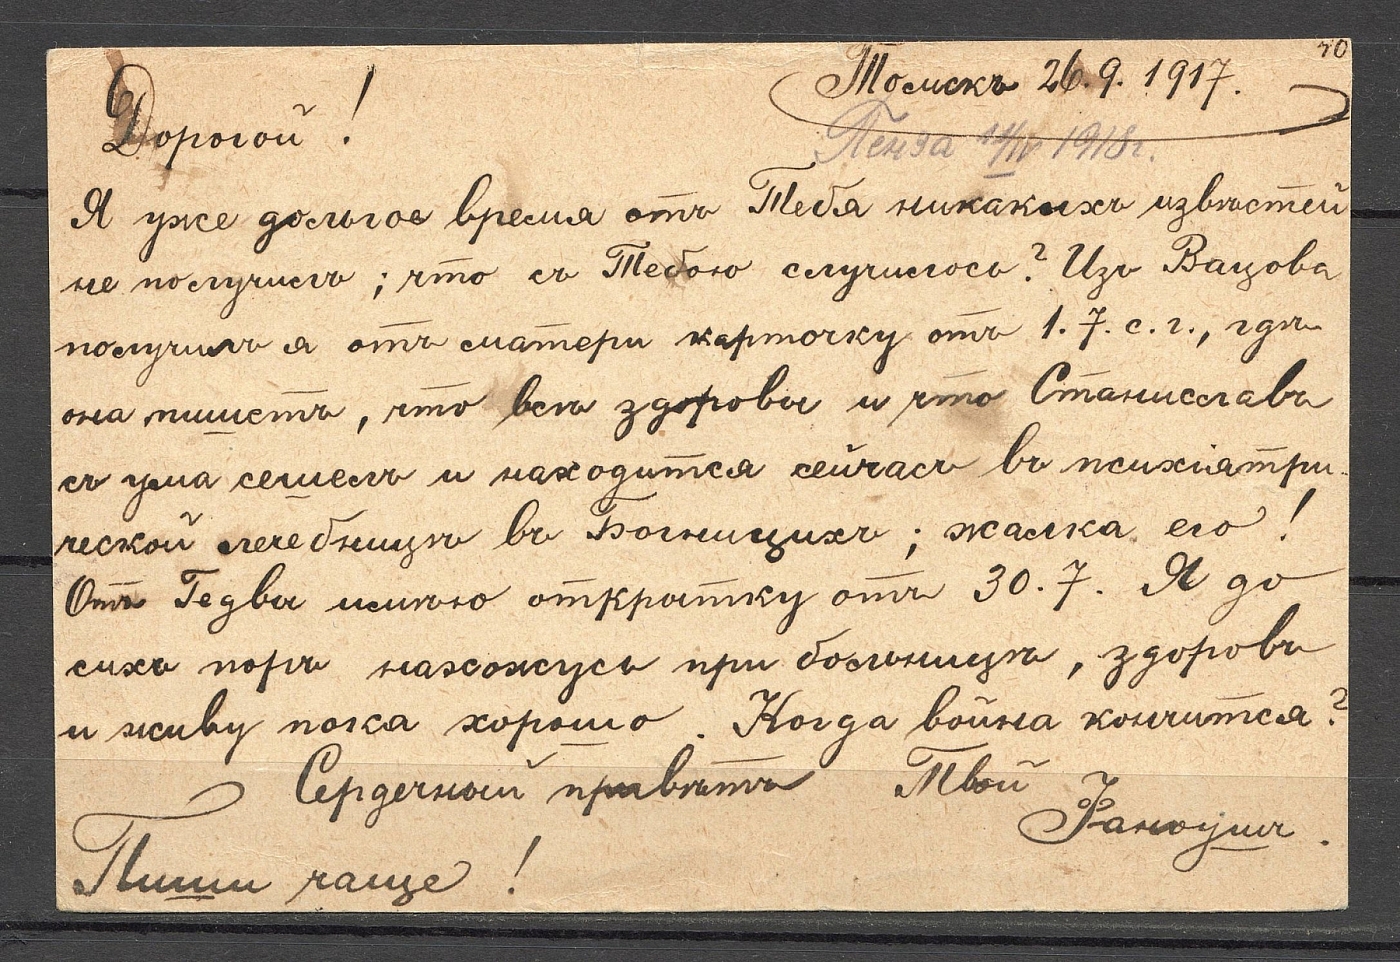 40
Томскъ 26.9.1917.
Дорогой!
Пенза 11/IV 1918г.
Я уже дольгое время отъ Тебя никакихъ извѣстей
не получилъ; что съ Тебою случилось? Изъ Вацова
получилъ я отъ матери карточку отъ 1.7. с.г., гдѣ
она пишетъ, что всѣ здоровы и что Станиславъ
съ ума сешелъ и находится сейчасъ въ психіятри-
ческой лечебницѣ въ Богницихъ; жалка его!
Отъ Гедвы имѣю открытку отъ 30.7. Я до
сихъ поръ нахожусь при больницѣ, здоровъ
и живу пока хорошо. Когда война кончится?
Сердечный привѣтъ Твой
Фаноушъ.
Пиши чаще!